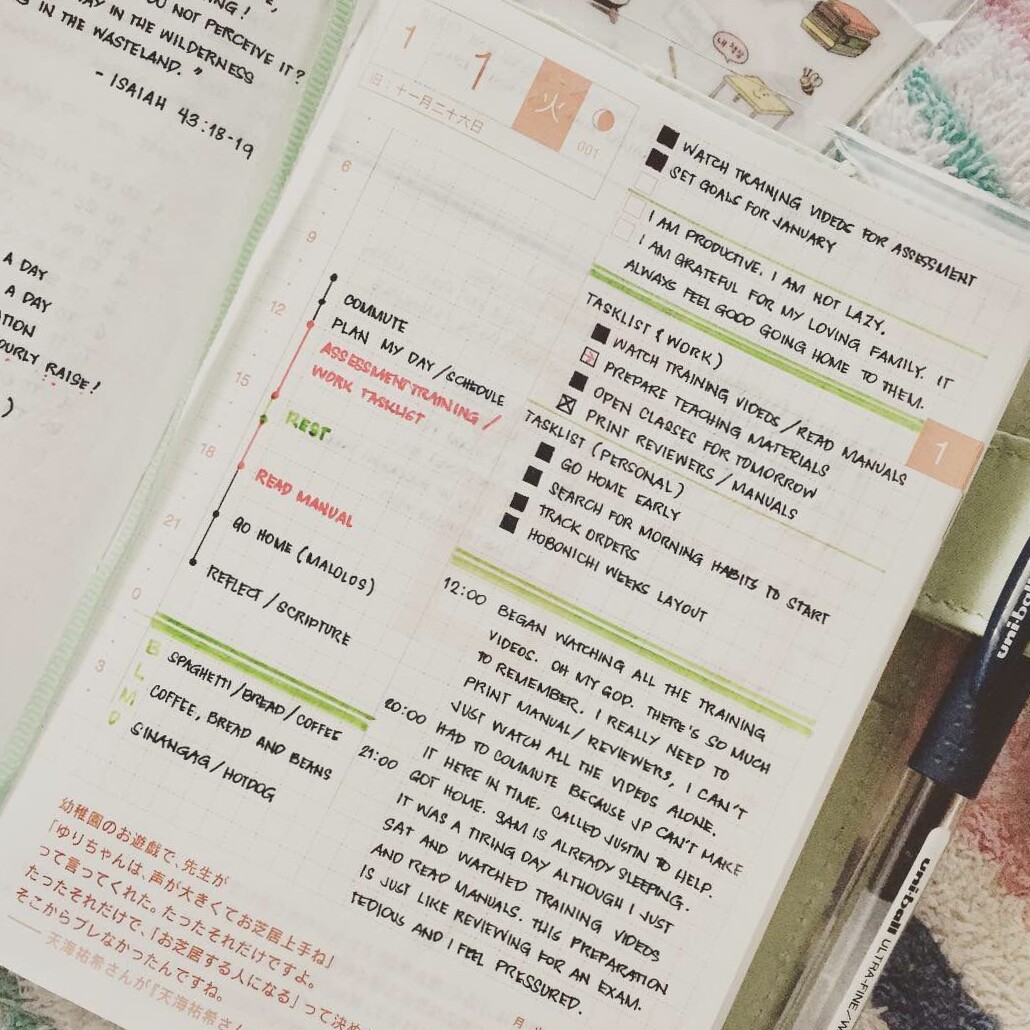 DO NOT PERCEIVE IT?
IN THE WILDERNESS
IN THE WASTELAND."
- ISAIAH 43:18-19
A DAY
A DAY
RAISE!
)
1
1
火
旧:十一月二十六日
001
6
9
12
15
18
21
0
3
COMMUTE
PLAN MY DAY/SCHEDULE
ASSESSMENT TRAINING /
WORK TASKLIST
REST
READ MANUAL
GO HOME (MALOLOS)
REFLECT/SCRIPTURE
B SPAGHETTI/BREAD/COFFEE
L COFFEE, BREAD AND BEANS
M SINANGAG/HOTDOG
D
幼稚園のお遊戯で、先生が
「ゆりちゃんは、声が大きくてお芝居上手ね」
って言ってくれた。たったそれだけですよ。
たったそれだけで、「お芝居する人になる」って決め
そこからブレなかったんですね。
──天海祐希さんが『天海祐希さん
내 책상
WATCH TRAINING VIDEOS FOR ASSESSMENT
SET GOALS FOR JANUARY
I AM PRODUCTIVE. I AM NOT LAZY.
I AM GRATEFUL FOR MY LOVING FAMILY. IT
ALWAYS FEEL GOOD GOING HOME TO THEM.
TASKLIST (WORK)
WATCH TRAINING VIDEOS/READ MANUALS
PREPARE TEACHING MATERIALS
OPEN CLASSES FOR TOMORROW
PRINT REVIEWERS/MANUALS
TASKLIST (PERSONAL)
GO HOME EARLY
SEARCH FOR MORNING HABITS TO START
TRACK ORDERS
HOBONICHI WEEKS LAYOUT
1
12:00 BEGAN WATCHING ALL THE TRAINING
VIDEOS. OH MY GOD. THERE'S SO MUCH
TO REMEMBER. I REALLY NEED TO
PRINT MANUAL/REVIEWERS, I CAN'T
JUST WATCH ALL THE VIDEOS ALONE.
20:00 HAD TO COMMUTE BECAUSE JP CAN'T MAKE
IT HERE IN TIME. CALLED JUSTIN TO HELP.
21:00 GOT HOME. SAM IS ALREADY SLEEPING.
IT WAS A TIRING DAY ALTHOUGH I JUST
SAT AND WATCHED TRAINING VIDEOS
AND READ MANUALS. THIS PREPARATION
IS JUST LIKE REVIEWING FOR AN EXAM.
TEDIOUS AND I FEEL PRESSURED.
uni-ball
uni-ball ULTRA-FINE/